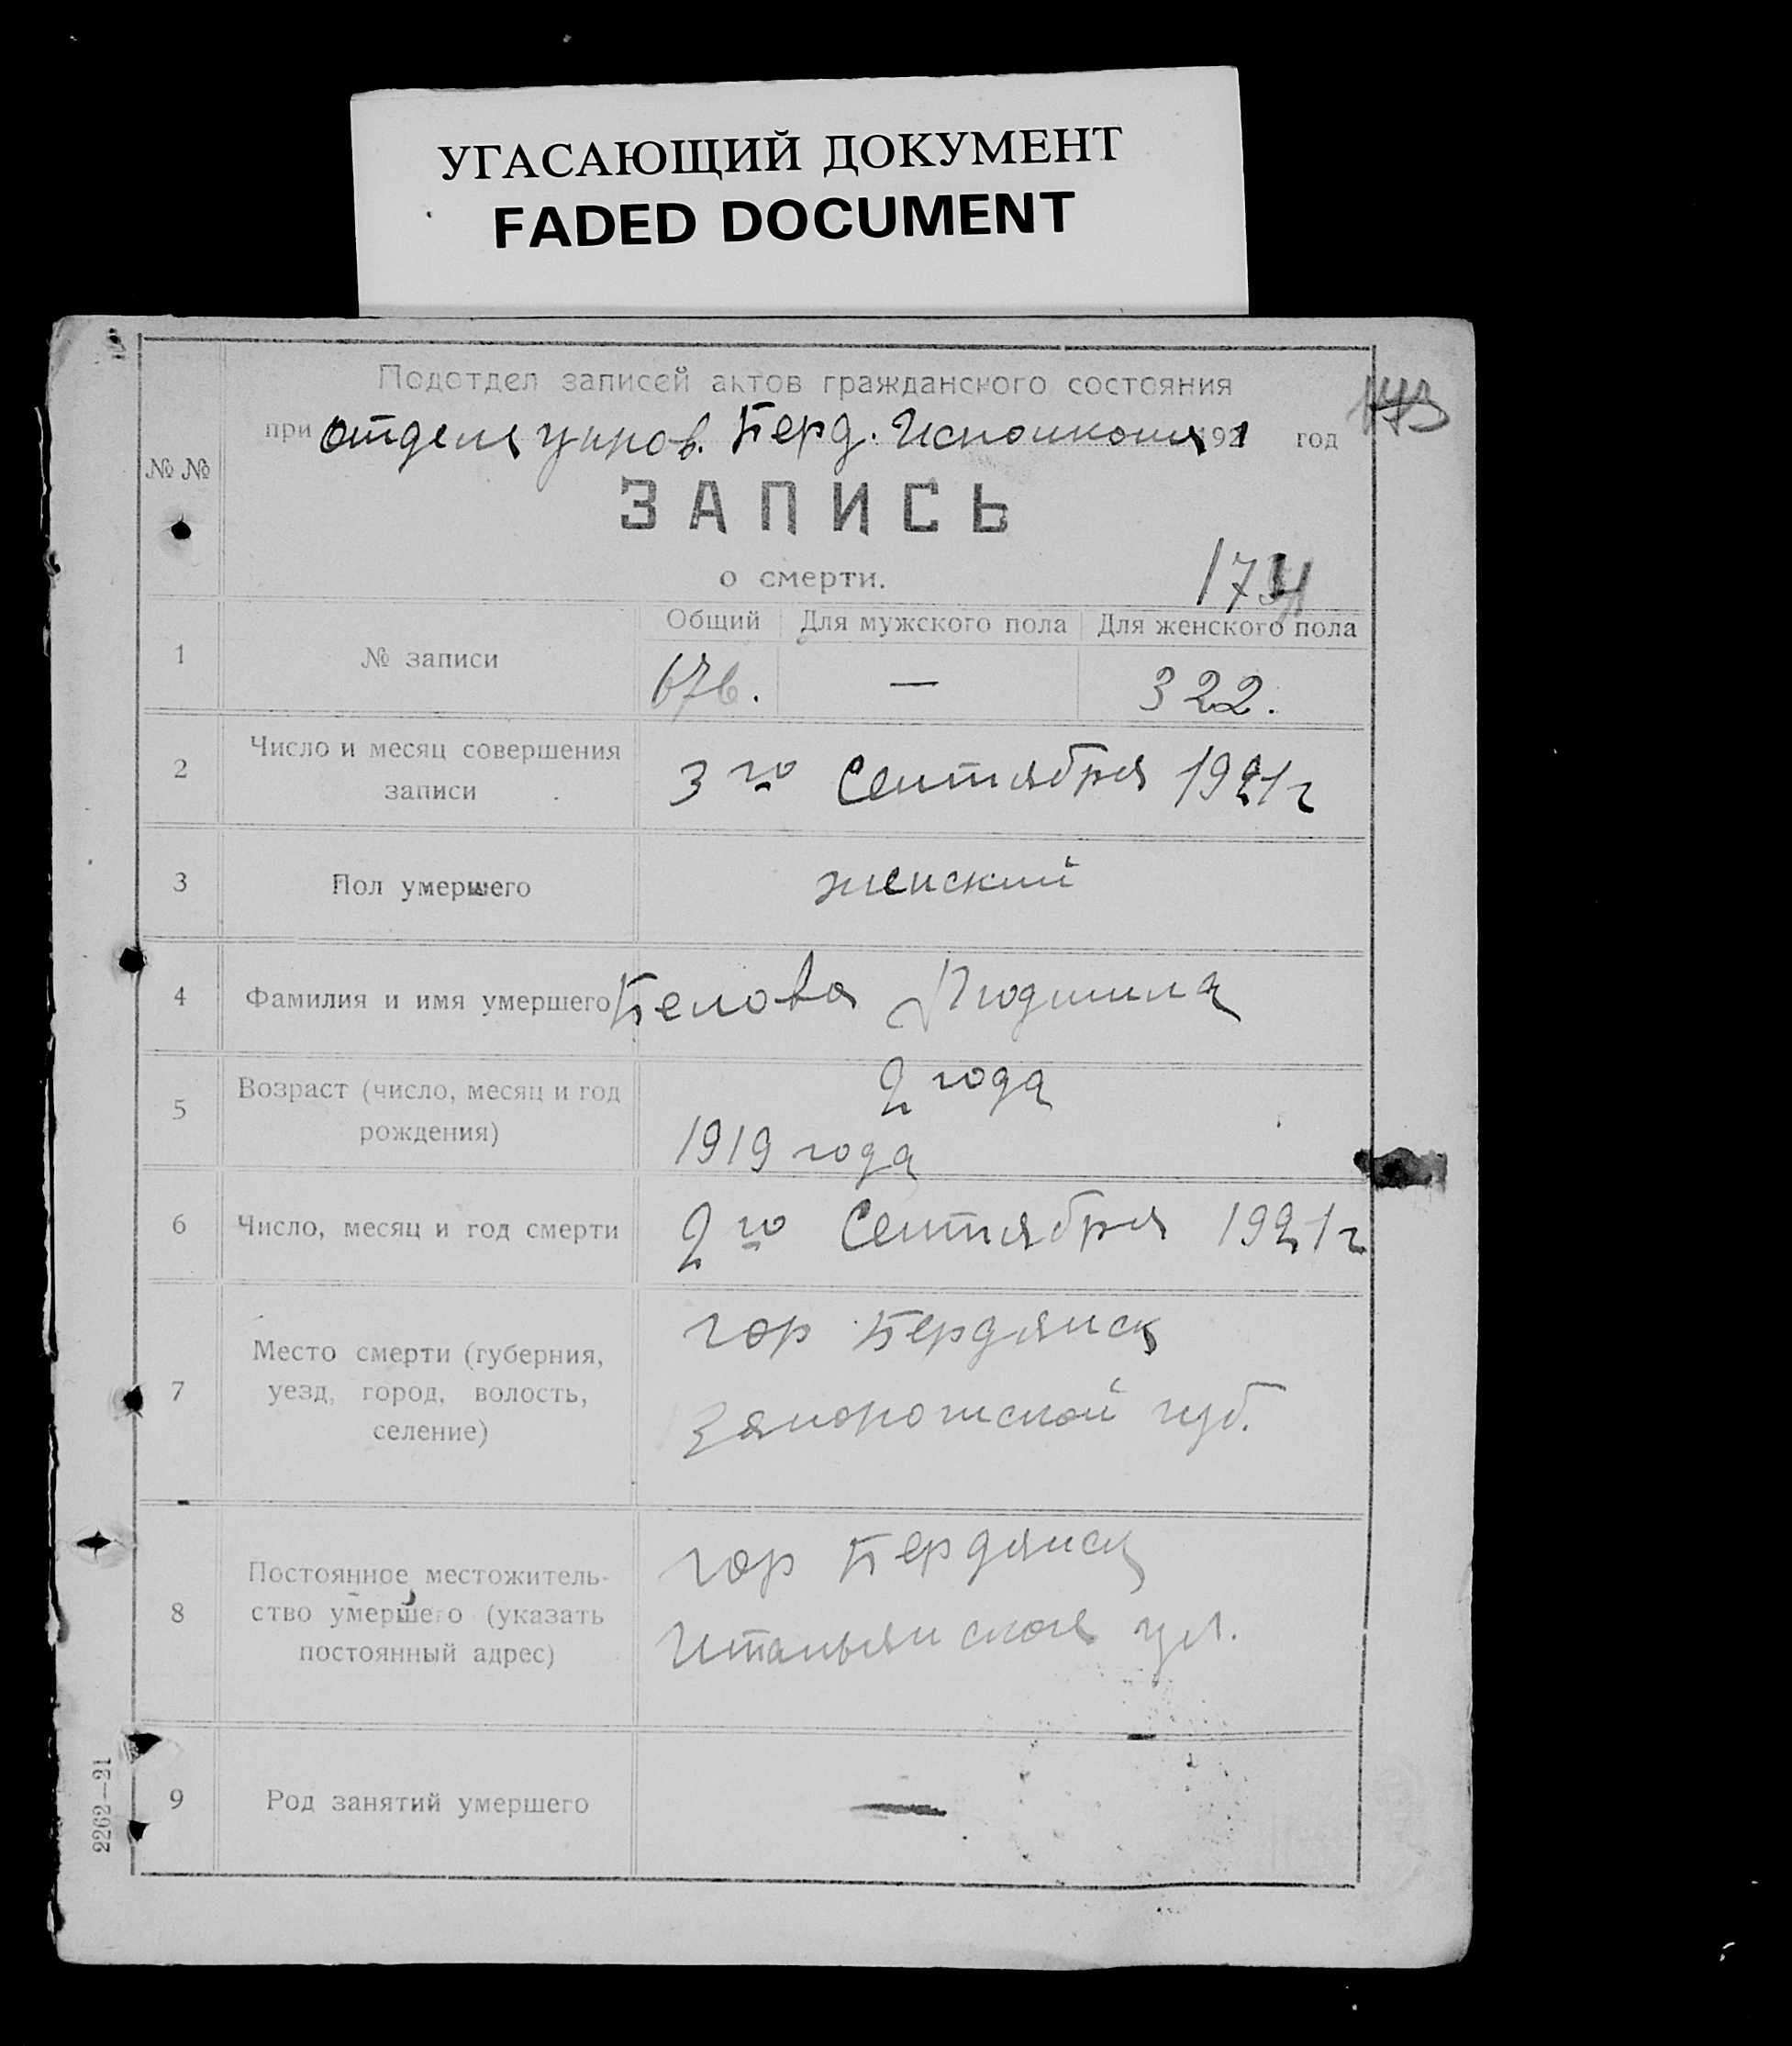 УГАСАЮЩИЙ ДОКУМЕНТ
FADED DOCUMENT
Подотдел записей актов гражданского состояния
при отдела управ. Берд. Исполкома 1921 год
173
№ №
ЗАПИСЬ
о смерти.
174
Общий Для мужского пола Для женского пола
1 № записи 676. — 322.
2 Число и месяц совершения
записи
3го Сентября 1921 г
3 Пол умершего женский
4 Фамилия и имя умершего Белова Людмила
5 Возраст (число, месяц и год
рождения)
2 года
1919 года
6 Число, месяц и год смерти 2го Сентября 1921 г
7 Место смерти (губерния,
уезд, город, волость,
селение)
гор Бердянск
Запорожской губ.
8 Постоянное местожитель-
ство умершего (указать
постоянный адрес)
гор Бердянск
Итальянская ул.
9 Род занятий умершего —
2262—21